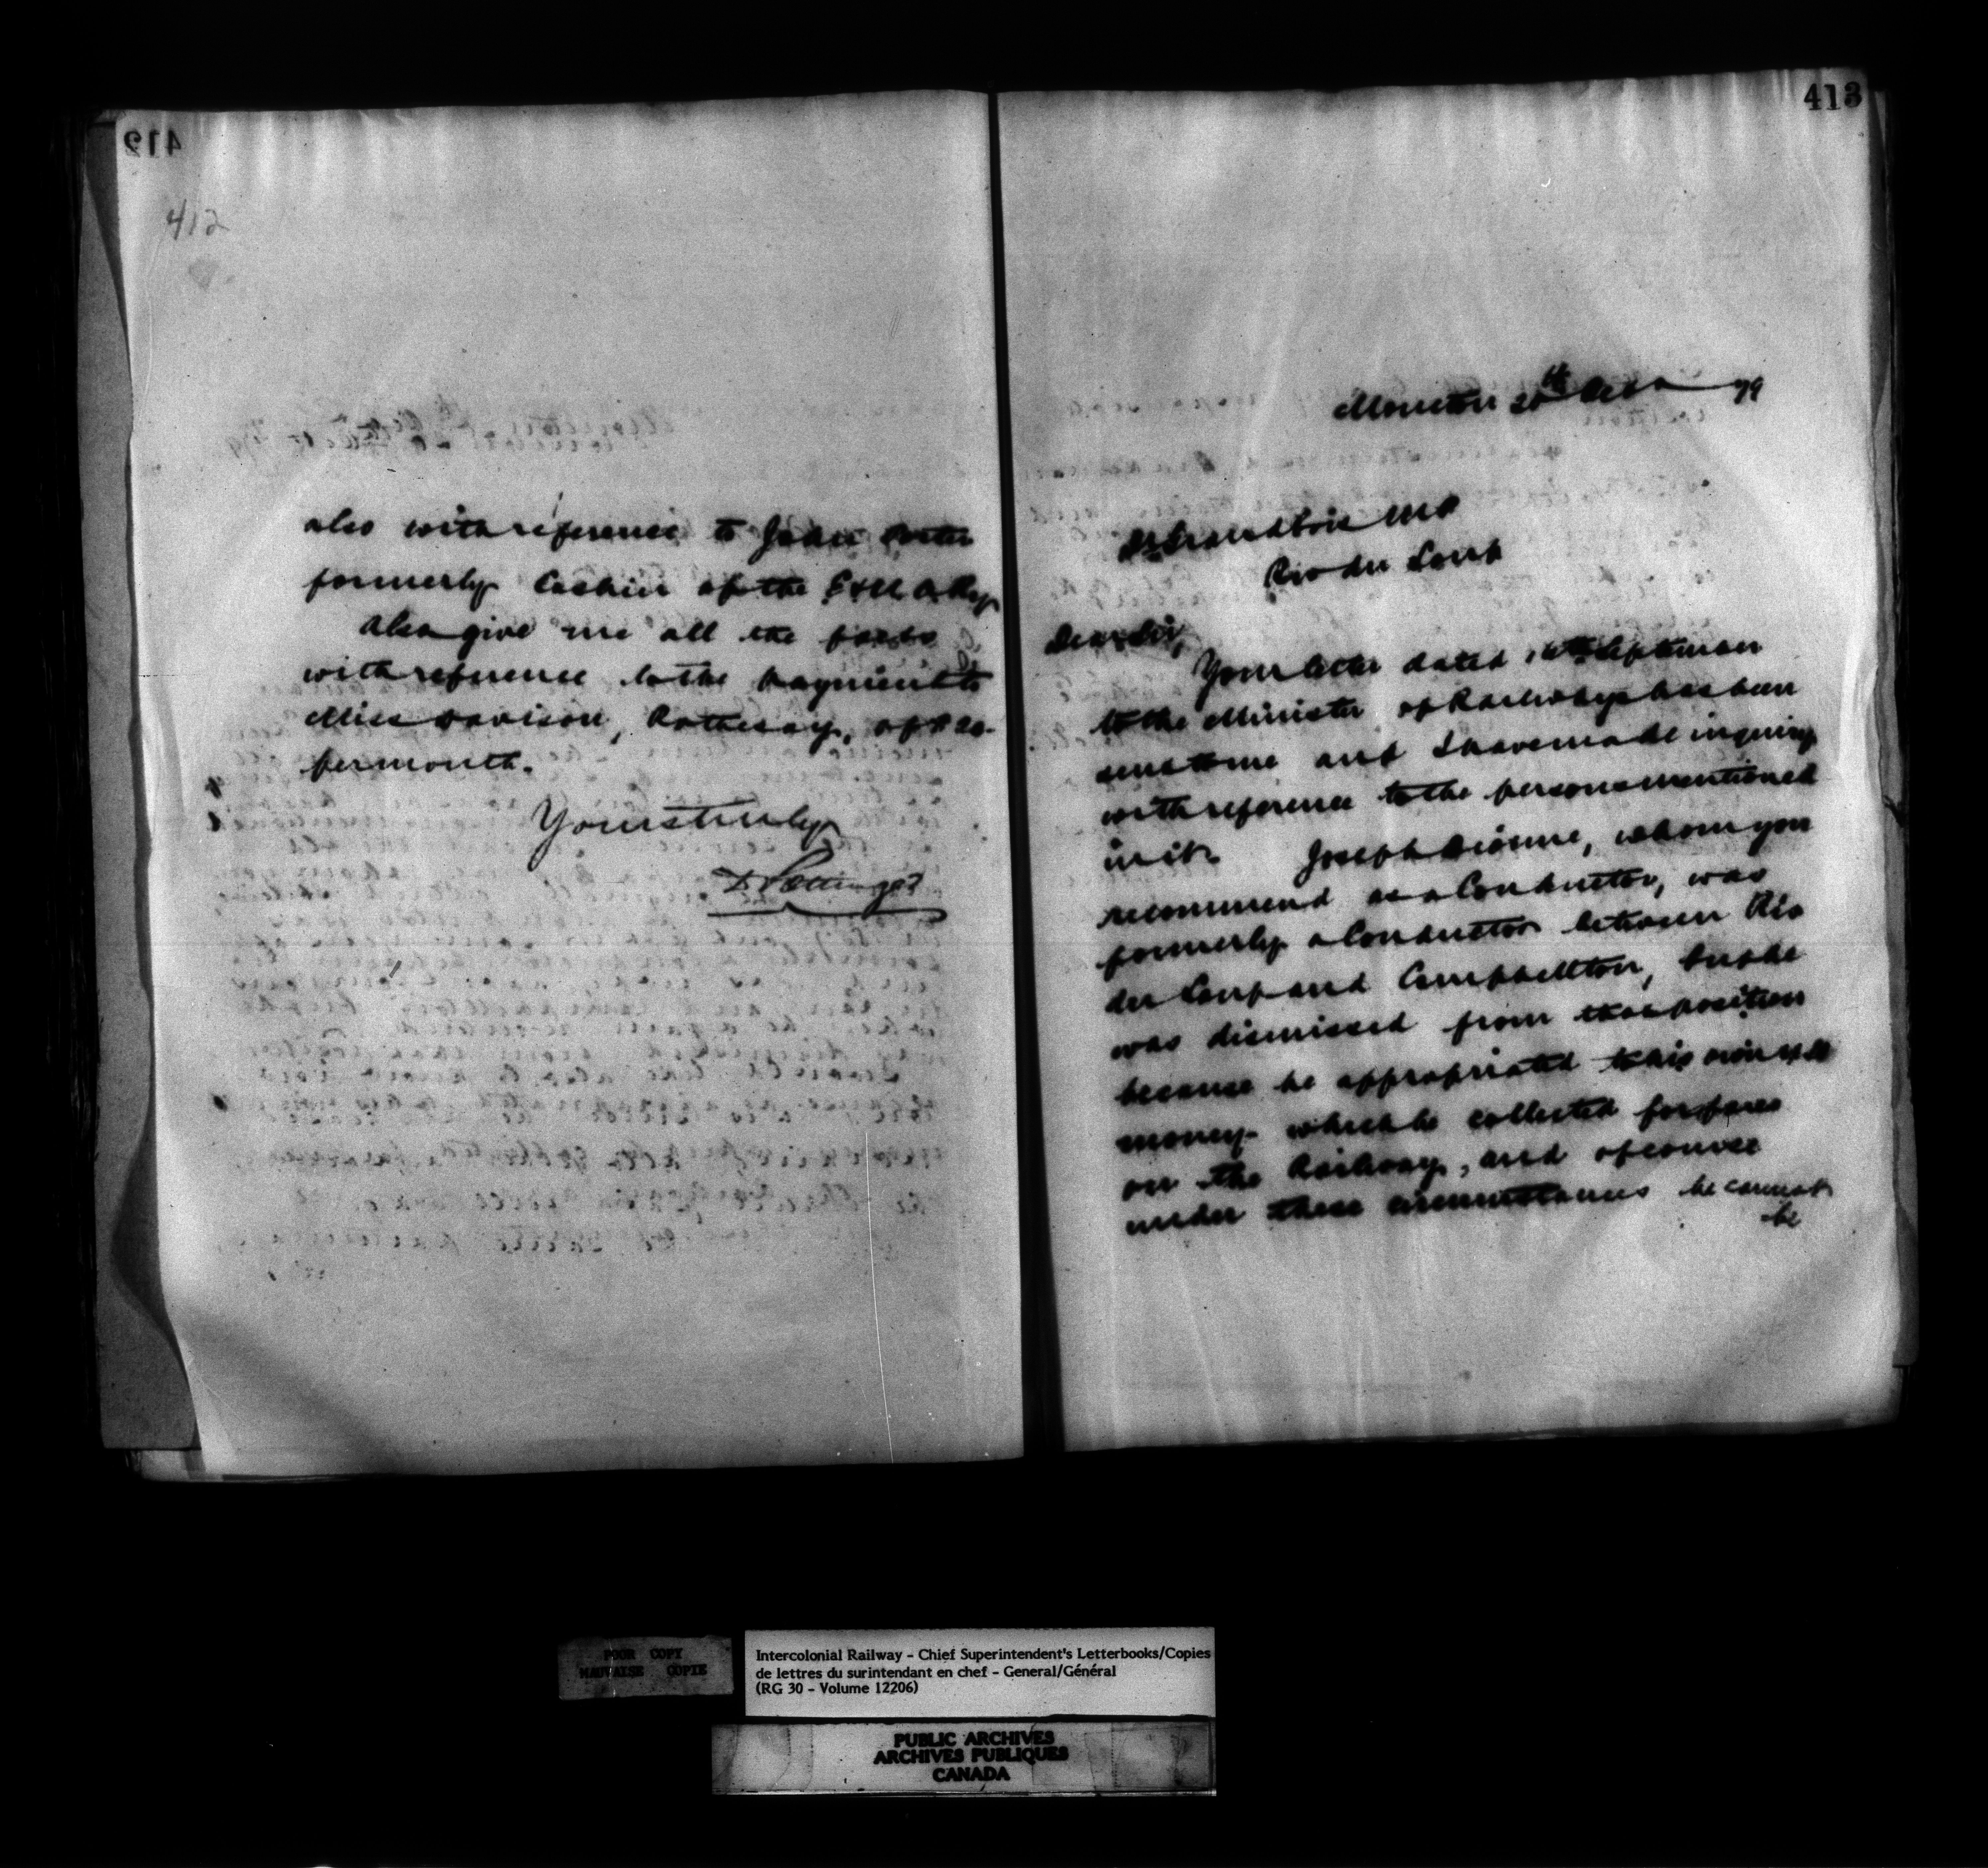 412
412
also with reference to John
formerly Cashier of the E & N A Ry
Also give me all the facts
with reference to the payment to
Miss Davison, Rothesay, of $20.
per month.
Yours truly
D Pottinger
413
Moncton 20th Oct 79
Dr Grandbois MP
Riv du Loup
Dear Sir,
Your letter dated September
to the Minister of Railways has been
sent to me and I have made inquiry
with reference to the persons mentioned
in it. Joseph Dionne, whom you
recommend as a Conductor, was
formerly a Conductor between Riv
du Loup and Campbellton, but he
was dismissed from that position
because he appropriated to his own use
money which he collected for fares
on the Railway, and of course
under these circumstances he cannot
be
POOR COPY
MAUVAISE COPIE
Intercolonial Railway - Chief Superintendent's Letterbooks/Copies
de lettres du surintendant en chef - General/Général
(RG 30 - Volume 12206)
PUBLIC ARCHIVES
ARCHIVES PUBLIQUES
CANADA